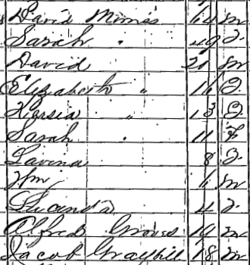 David Mimes 64 m
Sarah " 49 f
David 21 m
Elizabeth " 16 f
13 f
Sarah " 11 f
Lavina 8 f
Wm 6 m
Lucinda 4 f
Alfred Groves 19 m
Jacob Graybill 18 m